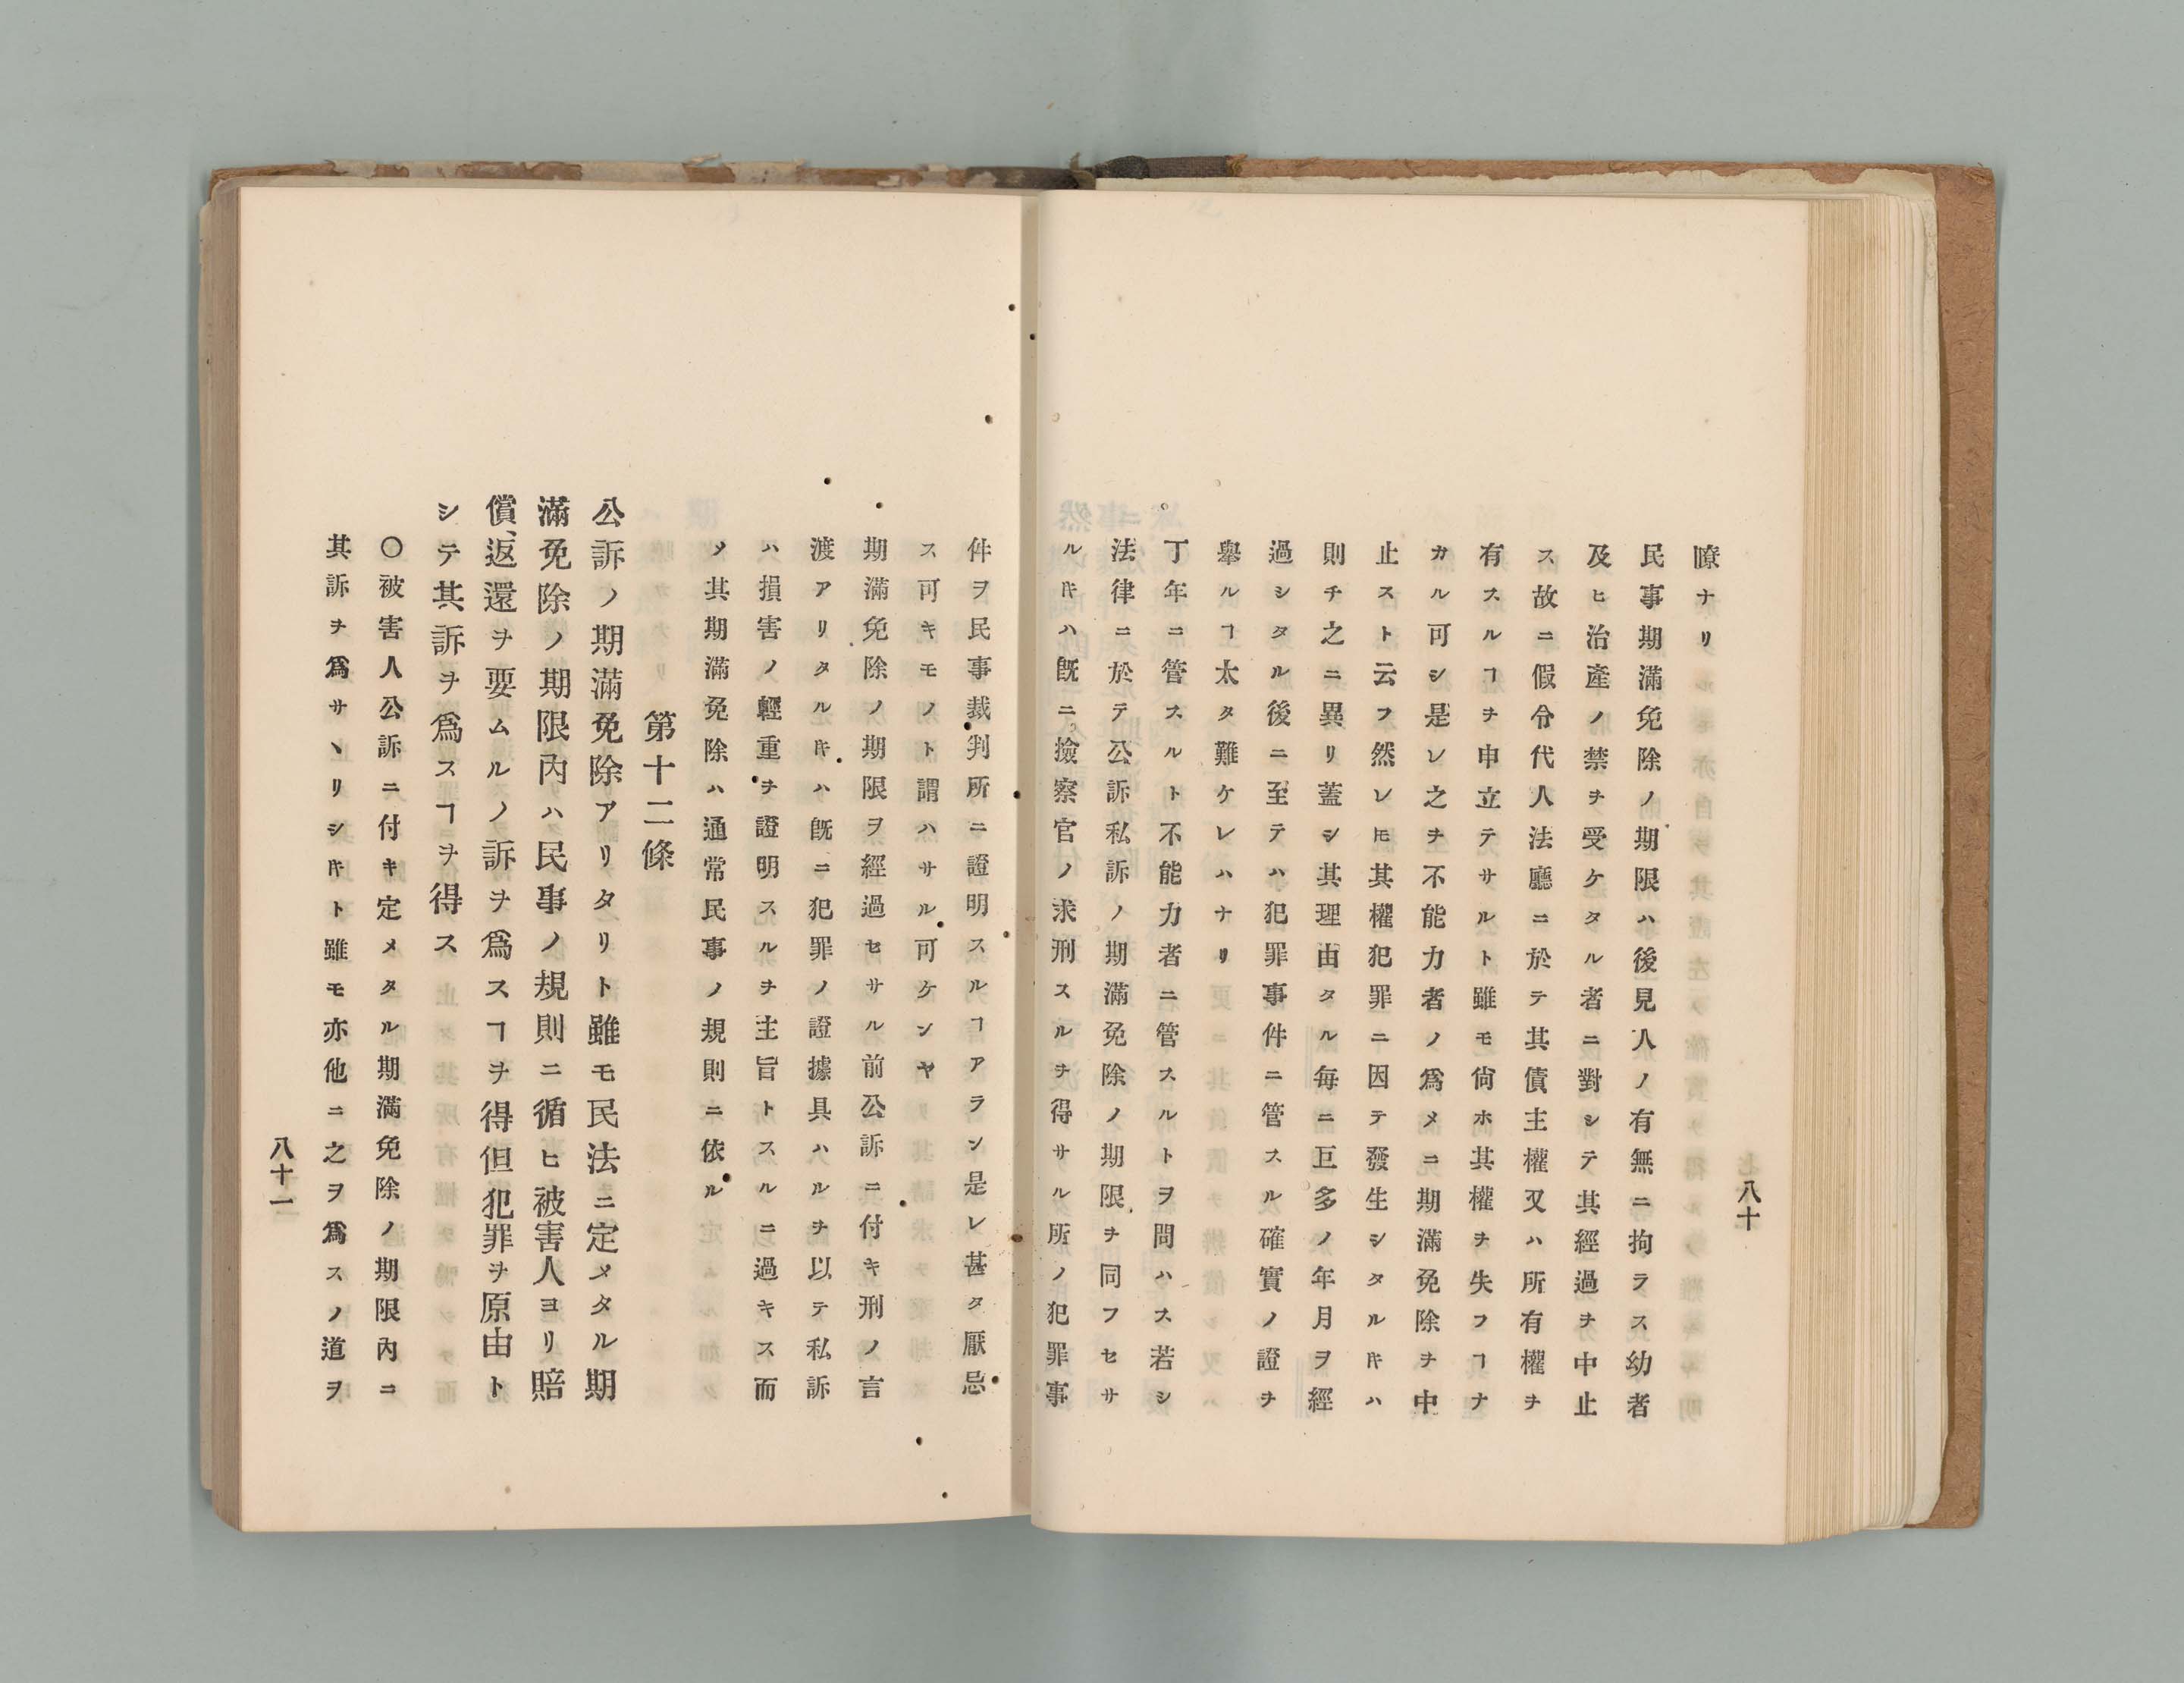 瞭ナリ
民事期滿免除ノ期限ハ後見人ノ有無ニ拘ラス幼者
及ヒ治產ノ禁ヲ受ケタル者ニ對シテ其經過ヲ中止
ス故ニ假令代人法廳ニ於テ其債主權又ハ所有權ヲ
有スルヿヲ申立テサルト雖モ尙ホ其權ヲ失フヿナ
カル可シ是レ之ヲ不能力者ノ爲メニ期滿免除ヲ中
止スト云フ然レ𪜈其權犯罪ニ因テ發生シタルキハ
則チ之ニ異リ蓋シ其理由タル每ニ巨多ノ年月ヲ經
過シタル後ニ至テハ犯罪事件ニ管スル確實ノ證ヲ
擧ルヿ太タ難ケレハナリ
丁年ニ管スルト不能力者ニ管スルトヲ問ハス若シ
法律ニ於テ公訴私訴ノ期滿免除ノ期限ヲ同フセサ
ルキハ旣ニ撿察官ノ求刑スルヲ得サル所ノ犯罪事
八十
件ヲ民事裁判所ニ證明スルヿアラン是レ甚タ厭忌
ス可キモノト謂ハサル可ケンヤ
期滿免除ノ期限ヲ經過セサル前公訴ニ付キ刑ノ言
渡アリタルキハ旣ニ犯罪ノ證據具ハルヲ以テ私訴
ハ損害ノ輕重ヲ證明スルヲ主旨トスルニ過キス而
ノ其期滿免除ハ通常民事ノ規則ニ依ル
第十二條
公訴ノ期滿免除アリタリト雖モ民法ニ定メタル期
滿免除ノ期限內ハ民事ノ規則ニ循ヒ被害人ヨリ賠
償、返還ヲ要ムルノ訴ヲ爲スヿヲ得但犯罪ヲ原由ト
シテ其訴ヲ爲スヿヲ得ス
〇被害人公訴ニ付キ定メタル期滿免除ノ期限內ニ
其訴ヲ爲サヽリシキト雖モ亦他ニ之ヲ爲スノ道ヲ
八十一